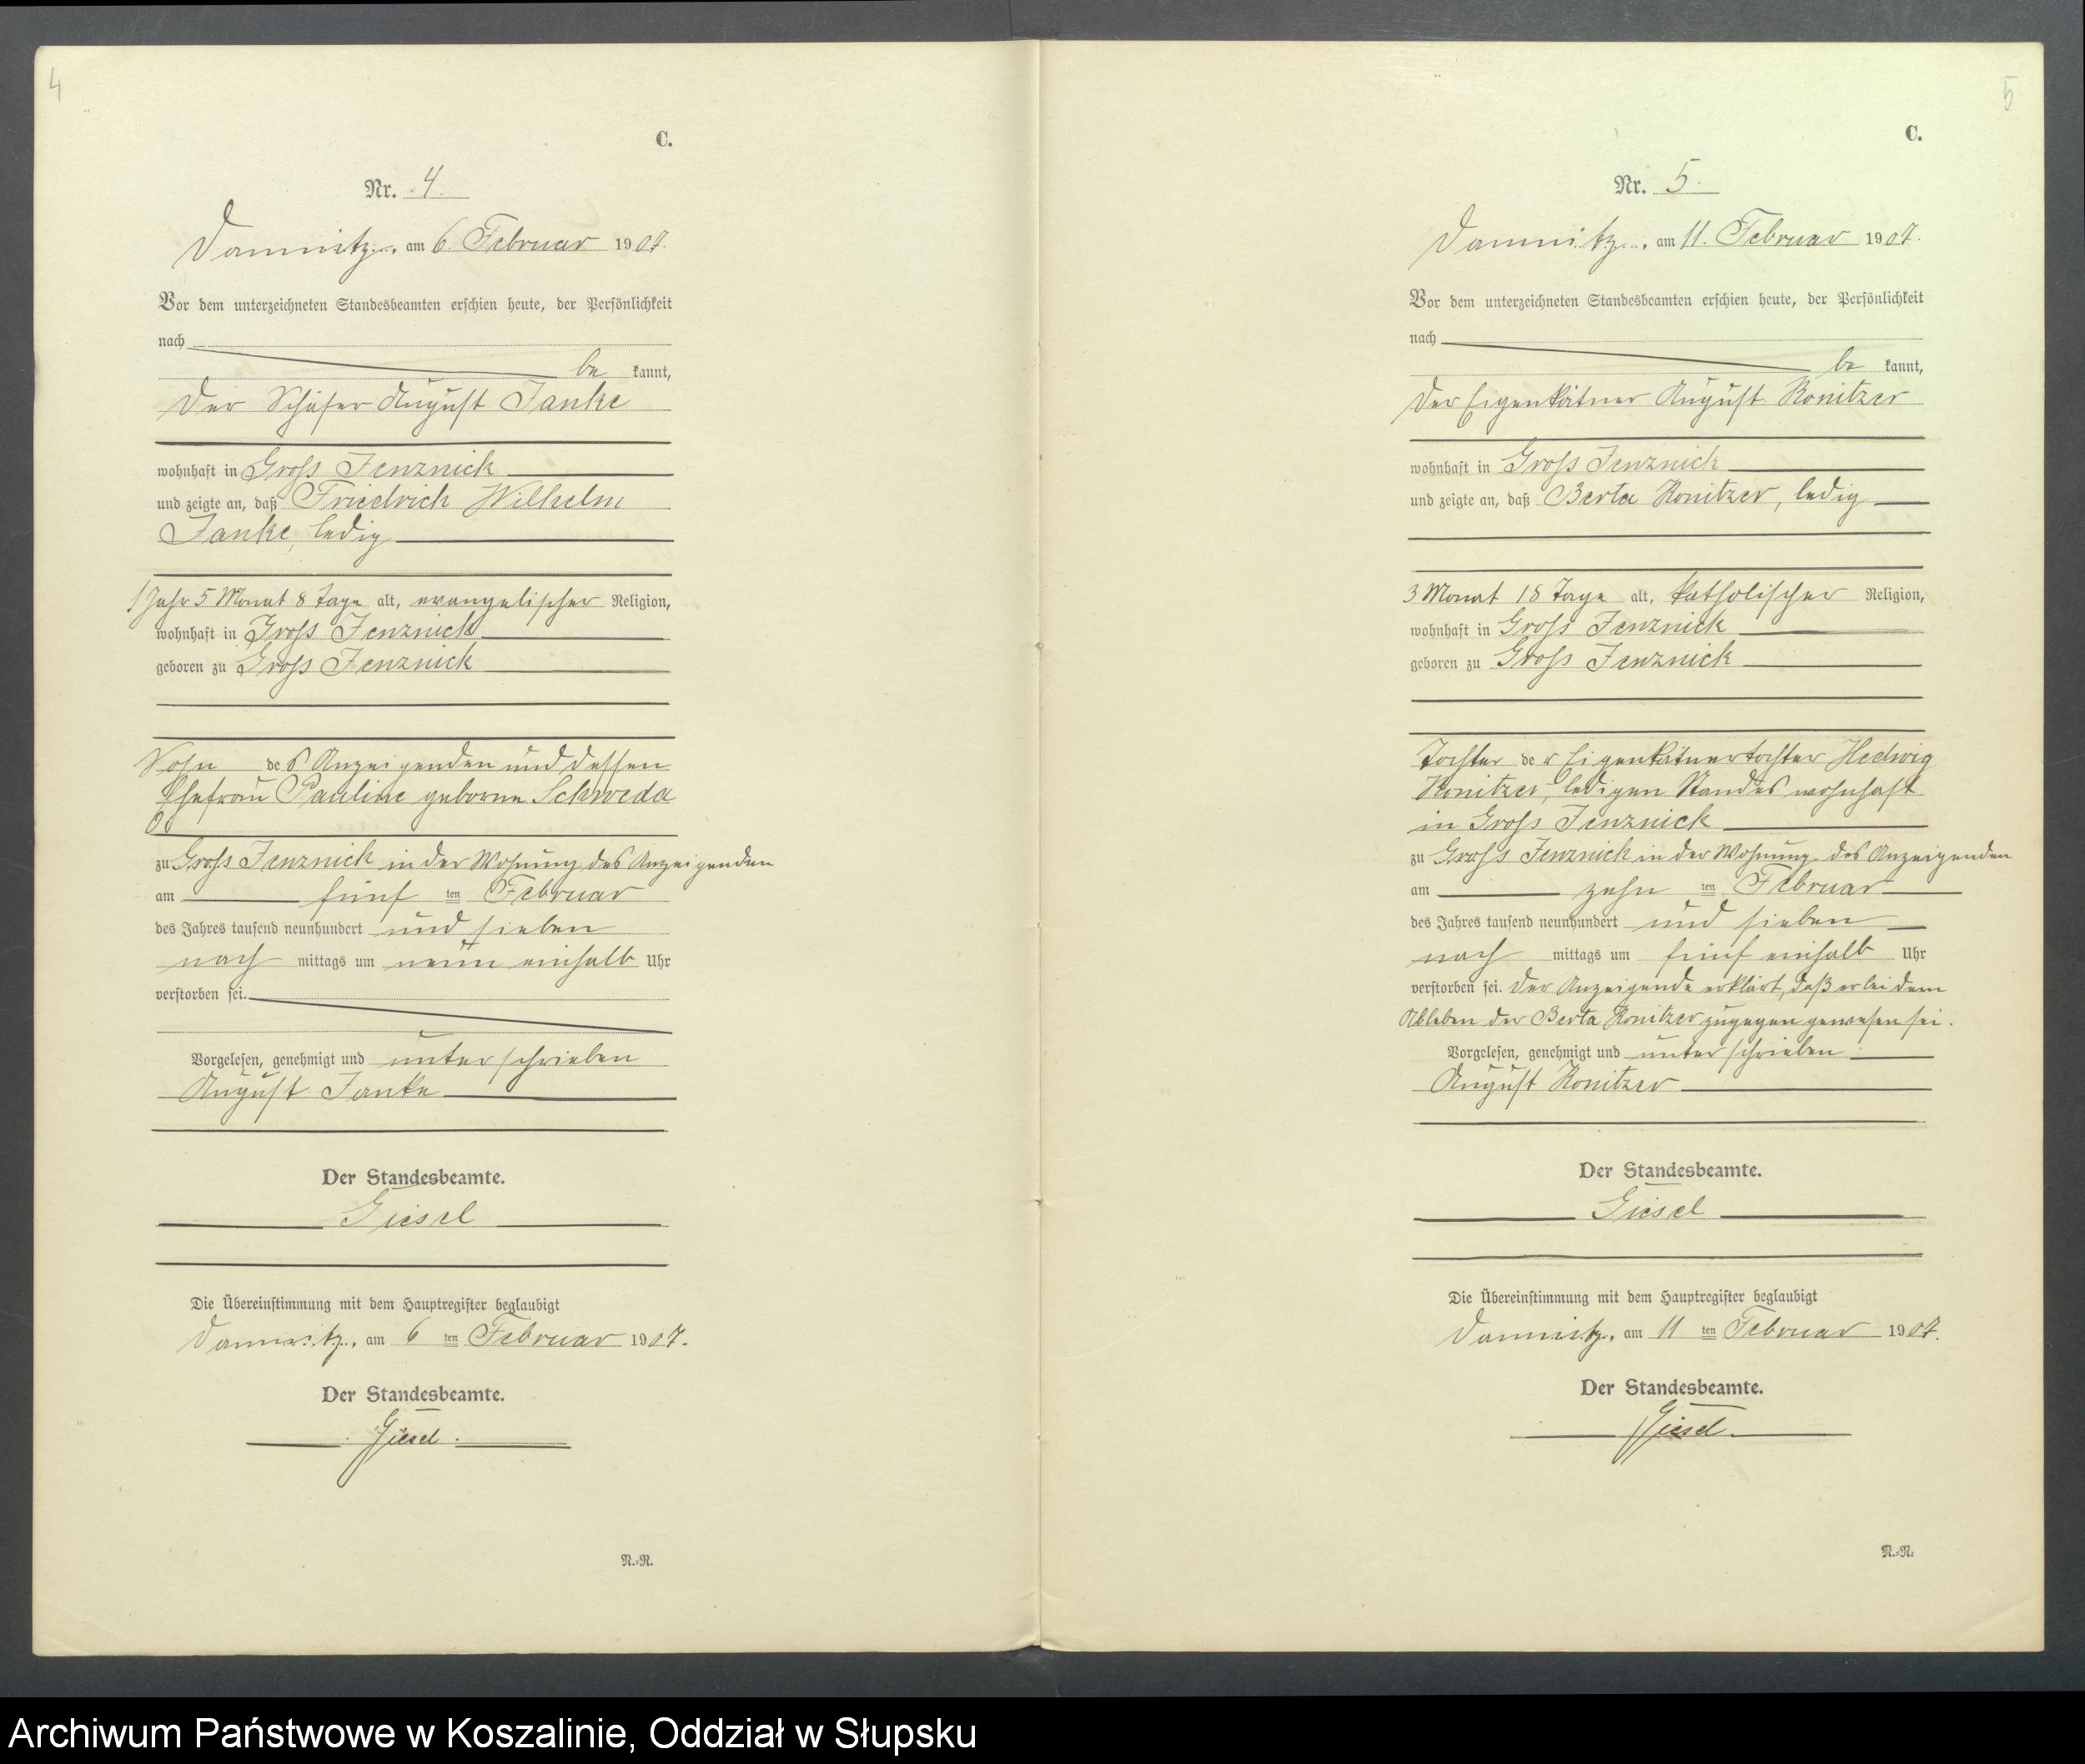 4
C.
Nr. 4.
Damnitz, am 6. Februar 1907.
Vor dem unterzeichneten Standesbeamten erschien heute, der Persönlichkeit
nach
be kannt,
der Schäfer August Janke
wohnhaft in Gross Jenznick
und zeigte an, daß Friedrich Wilhelm
Janke, ledig
1 Jahr 5 Monat 8 Tage alt, evangelischer Religion,
wohnhaft in Gross Jenznick
geboren zu Gross Jenznick
Sohn des Anzeigenden und dessen
Ehefrau Pauline geborne Schweda
zu Gross Jenznick in der Wohnung des Anzeigenden
am fünf ten Februar
des Jahres tausend neunhundert und sieben
nach mittags um neun einhalb Uhr
verstorben sei.
Vorgelesen, genehmigt und unterschrieben
August Janke
Der Standesbeamte.
Giesel
Die Übereinstimmung mit dem Hauptregister beglaubigt
Damnitz, am 6 ten Februar 1907.
Der Standesbeamte.
Giesel.
N.=R.
5
C.
Nr. 5.
Damnitz, am 11. Februar 1907.
Vor dem unterzeichneten Standesbeamten erschien heute, der Persönlichkeit
nach
be kannt,
der Eigenkätner August Konitzer
wohnhaft in Gross Jenznick
und zeigte an, daß Berta Konitzer, ledig
3 Monat 18 Tage alt, katholischer Religion,
wohnhaft in Gross Jenznick
geboren zu Gross Jenznick
Tochter der Eigenkätnertochter Hedwig
Konitzer, ledigen Standes wohnhaft
in Gross Jenznick
zu Gross Jenznick in der Wohnung des Anzeigenden
am zehn ten Februar
des Jahres tausend neunhundert und sieben
nach mittags um fünf einhalb Uhr
verstorben sei. Der Anzeigende erklärt, daß er bei dem
Ableben der Berta Konitzer zugegen gewesen sei.
Vorgelesen, genehmigt und unterschrieben
August Konitzer
Der Standesbeamte.
Giesel
Die Übereinstimmung mit dem Hauptregister beglaubigt
Damnitz, am 11 ten Februar 1907.
Der Standesbeamte.
Giesel.
N.=R.
Archiwum Państwowe w Koszalinie, Oddział w Słupsku